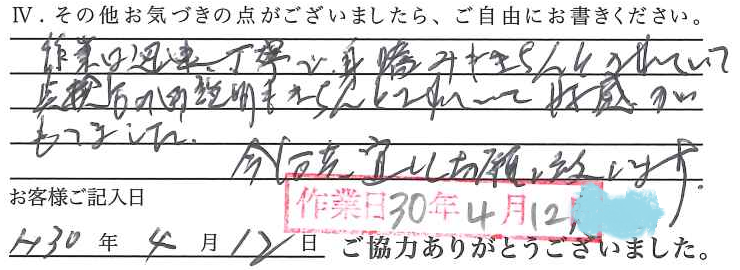 Ⅳ．その他お気づきの点がございましたら、ご自由にお書きください。
作業は迅速、丁寧で、身嗜みもきちんとされていて
点検後の説明もきちんとされていて好感が
もてました。
今後共宜しくお願い致します。
お客様ご記入日
作業日30年4月12
H30年4月12日 ご協力ありがとうございました。